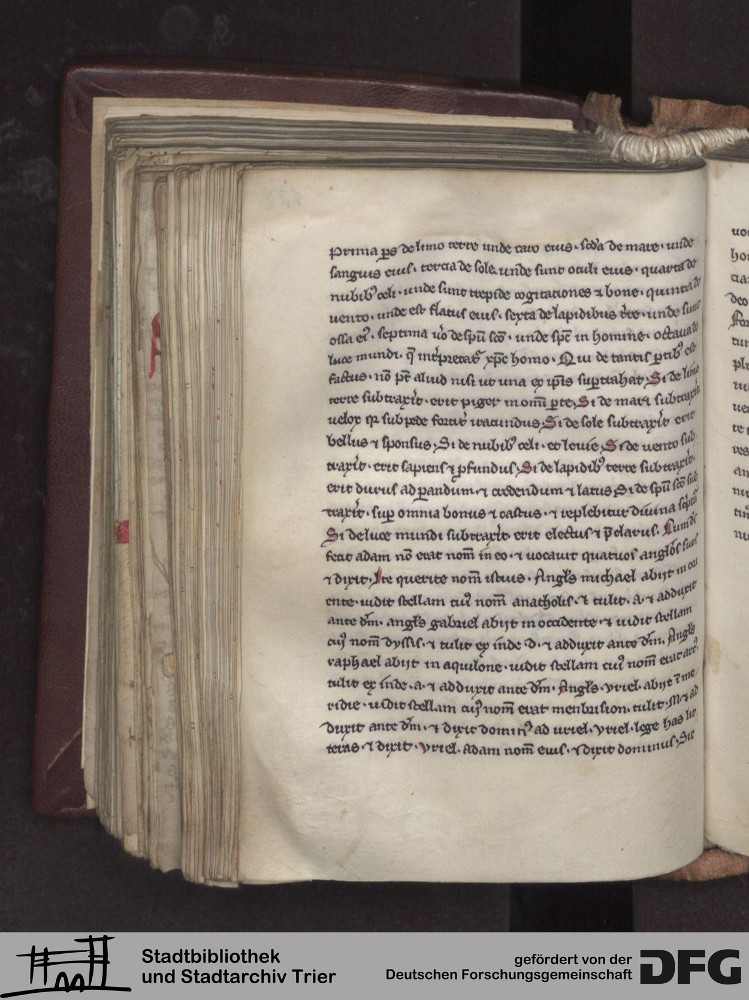 Prima ps de limo terre unde caro eius · scda de mare · unde
sanguis eius · tercia de sole · unde sunt oculi eius · quarta de
nubib' celi · unde sunt trepide cogitationes ⁊ bone · quinta de
vento · unde est flatus eius · sexta de lapidibus tre · unde sunt
ossa ei' · septima uo de spu sco · unde spc in homine · octaua de
luce mundi · q interpretat xpc homo · Qui de tantis ptib' est
factus · no pt aliud nisi ut una ex ipis suptrahat · Si de limo
terre subtraxit · erit piger in omi pte · Si de mari subtraxit
velox subpede fortit iracundus · Si de sole subtraxit erit
bellus ⁊ sponsus · Si de nubib' celi · et leuis · Si de vento sub
traxit · erit sapiens ⁊ pfundus · Si de lapidib' terre subtraxit ·
erit durus ad pandum · ⁊ credendum ⁊ latus · Si de spu sco sub
traxit · sup omnia bonus ⁊ castus · ⁊ replebitur diuina scptura
Si de luce mundi subtraxit erit electus ⁊ pclarus · Cum ds
fecit adam no erat nom in eo · ⁊ uocauit quatuor anglos suos
⁊ dixit · Ite querite nom istius · Angls michael abijt in ori
ente · uidit stellam cui' nom anatholis · ⁊ tulit · a · ⁊ adduxit
ante dm · angls gabriel abijt in occidente · ⁊ uidit stellam
cuj' nom dyssis · ⁊ tulit ex inde · d · ⁊ adduxit ante dm · Angls
raphael abijt in aquilone · uidit stellam cuj' nom erat arc'
tulit ex inde · a · ⁊ adduxit ante dm · Angls · vriel · abijt i me
ridie · uidit stellam cuj' nom erat menbrision · tulit · M · ⁊ ad
duxit ante dm · ⁊ dixit domin' ad uriel · vriel · lege has lit
teras · ⁊ dixit · vriel · adam nom eius · ⁊ dixit dominus · Sic
Stadtbibliothek
und Stadtarchiv Trier
gefördert von der
Deutschen Forschungsgemeinschaft
DFG